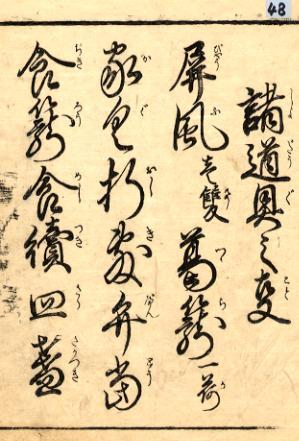 48
諸道具之事
屏風壱雙葛籠一荷
家具折敷弁当
食籠食續皿盞